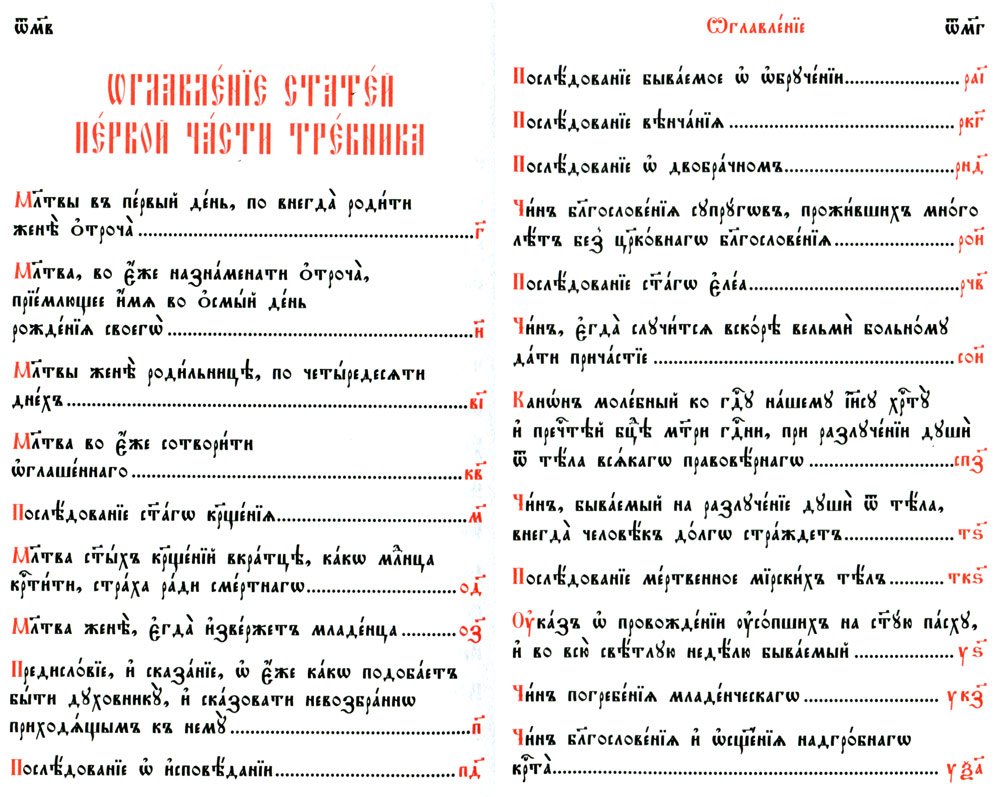 ѿм҃в
Ѡглавле́нїе стате́й
пе́рвой ча́сти тре́бника
Мл҃твы въ пе́рвый де́нь, по внегда̀ роди́ти
женѣ̀ ѻ҆троча̀ ... г҃
Мл҃тва, во є҆́же назна́менати ѻ҆троча̀,
прїе́млющее и҆́мѧ во ѻ҆смы́й де́нь
рожде́нїѧ своегѡ̀ ... и҃
Мл҃твы женѣ̀ роди́льницѣ, по четы́редесѧти
дне́хъ ... в҃і
Мл҃тва во є҆́же сотвори́ти
ѡ҆глаше́ннаго ... к҃в
Послѣ́дованїе ст҃а́гѡ кр҃ще́нїѧ ... м҃
Мл҃тва ст҃ы́хъ кр҃ще́нїй вкра́тцѣ, ка́кѡ мл҃нца
кр҃ти́ти, стра́ха ра́ди сме́ртнагѡ ... о҃д
Мл҃тва женѣ̀, є҆гда̀ и҆зве́ржетъ младе́нца ... о҃з
Предисло́вїе, и҆ сказа́нїе, ѡ҆ є҆́же ка́кѡ подоба́етъ
бы́ти дꙋхо́вникꙋ, и҆ ска́зовати невозбра́ннѡ
приходѧ́щымъ къ немꙋ̀ ... п҃
Послѣ́дованїе ѡ҆ и҆сповѣ́данїи ... п҃д
Ѡглавле́нїе
ѿм҃г
Послѣ́дованїе быва́емое ѡ҆ ѡ҆брꙋче́нїи ... ра҃і
Послѣ́дованїе вѣнча́нїѧ ... рк҃г
Послѣ́дованїе ѡ҆ двобра́чномъ ... рн҃д
Чи́нъ бл҃гослове́нїѧ сꙋпрꙋ́гѡвъ, прожи́вшихъ мно́го
лѣ́тъ без̾ цр҃ко́внагѡ бл҃гослове́нїѧ ... ро҃и
Послѣ́дованїе ст҃а́гѡ є҆ле́а ... рч҃в
Чи́нъ, є҆гда̀ слꙋчи́тсѧ вско́рѣ вельмѝ больно́мꙋ
да́ти прича́стїе ... со҃и
Канѡ́нъ моле́бный ко гдⷭ҇ꙋ на́шемꙋ і҆и҃сꙋ хрⷭ҇тꙋ̀
и҆ пречⷭ҇тѣй бц҃ѣ мт҃ри гдⷭ҇ни, при разлꙋче́нїи дꙋшѝ
ѿ тѣ́ла всѧ́кагѡ правовѣ́рнагѡ ... сп҃з
Чи́нъ, быва́емый на разлꙋче́нїе дꙋшѝ ѿ тѣ́ла,
внегда̀ человѣ́къ до́лгѡ стра́ждетъ ... т҃ѕ
Послѣ́дованїе ме́ртвенное мїрски́хъ тѣ́лъ ... тк҃ѕ
Оу҆ка́зъ ѡ҆ провожде́нїи ᲂу҆со́пшихъ на ст҃ꙋ́ю па́схꙋ,
и҆ во всю̀ свѣ́тлꙋю недѣ́лю быва́емый ... у҃ѕ
Чи́нъ погребе́нїѧ младе́нческагѡ ... ук҃з
Чи́нъ бл҃гослове́нїѧ и҆ ѡ҆сщ҃е́нїѧ надгро́бнагѡ
крⷭ҇та̀ ... уѯ҃